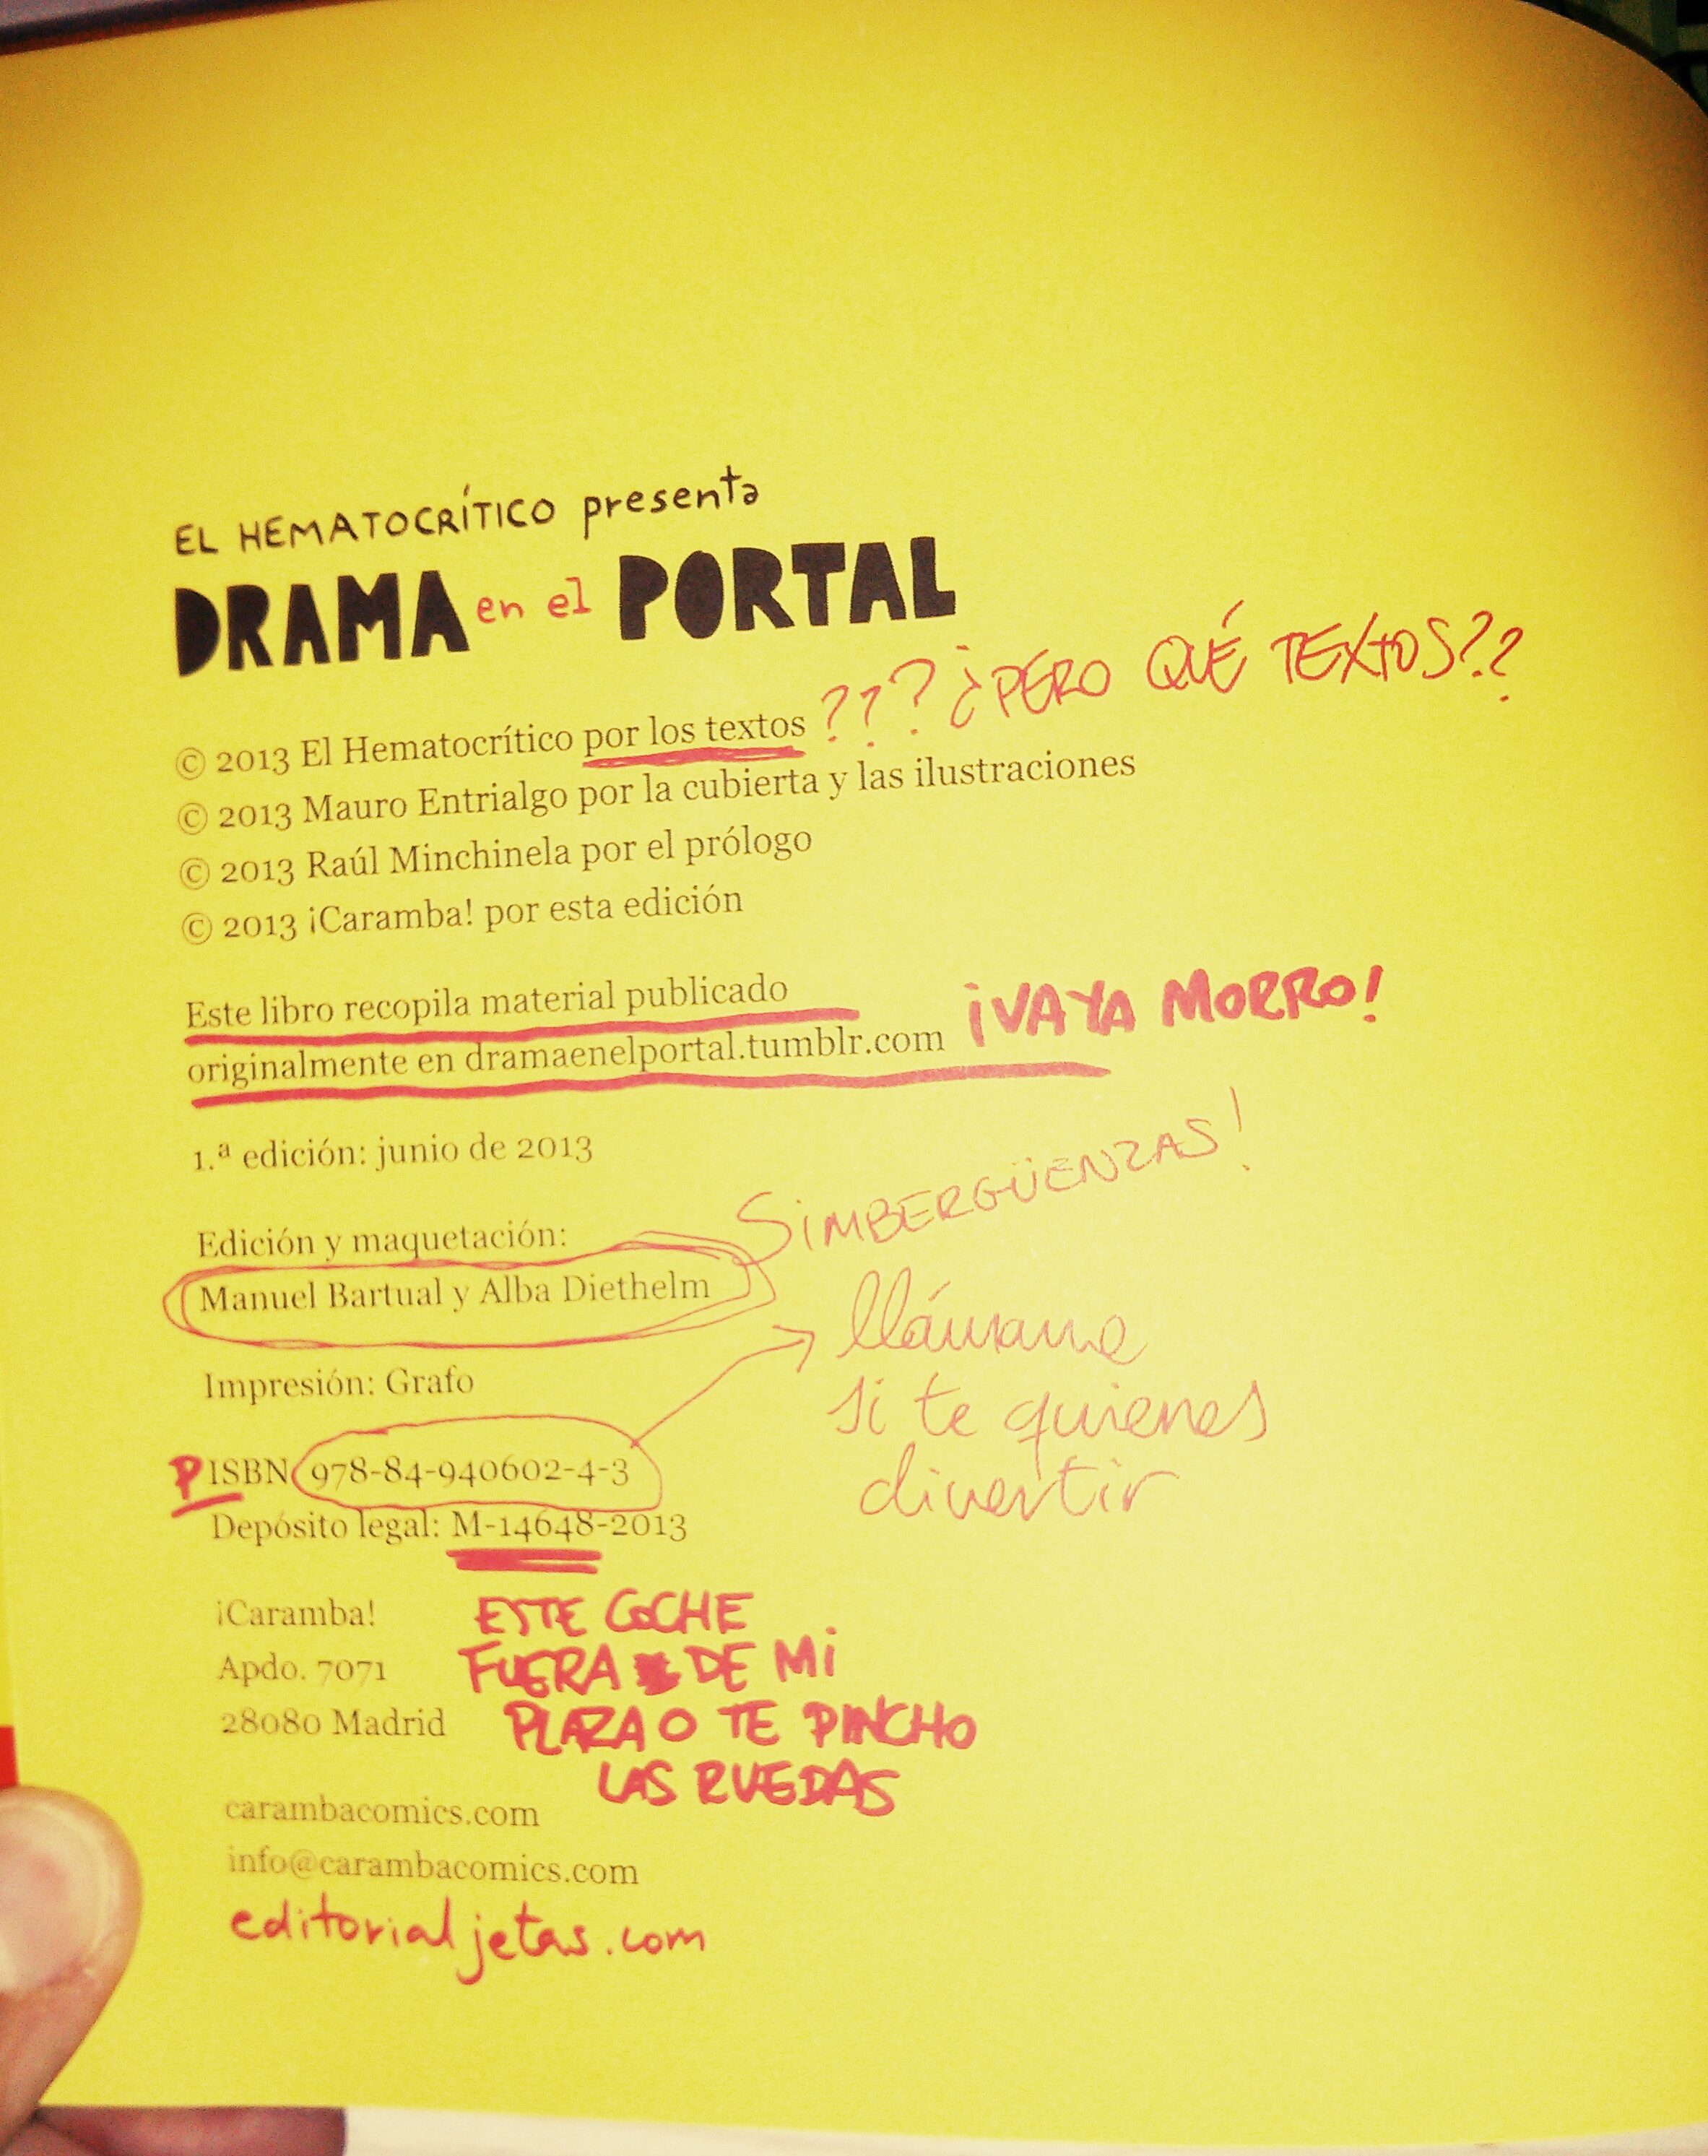 EL HEMATOCRÍTICO presenta
DRAMA en el PORTAL
© 2013 El Hematocrítico por los textos ??? ¿PERO QUÉ TEXTOS??
© 2013 Mauro Entrialgo por la cubierta y las ilustraciones
© 2013 Raúl Minchinela por el prólogo
© 2013 ¡Caramba! por esta edición
Este libro recopila material publicado
originalmente en dramaenelportal.tumblr.com ¡VAYA MORRO!
1.ª edición: junio de 2013
SIMBERGÜENZAS!
Edición y maquetación:
Manuel Bartual y Alba Diethelm
lláname
si te quieres
divertir
Impresión: Grafo
PISBN 978-84-940602-4-3
Depósito legal: M-14648-2013
¡Caramba!
Apdo. 7071
28080 Madrid
ESTE COCHE
FUERA DE MI
PLAZA O TE PINCHO
LAS RUEDAS
carambacomics.com
info@carambacomics.com
editorialjetas.com